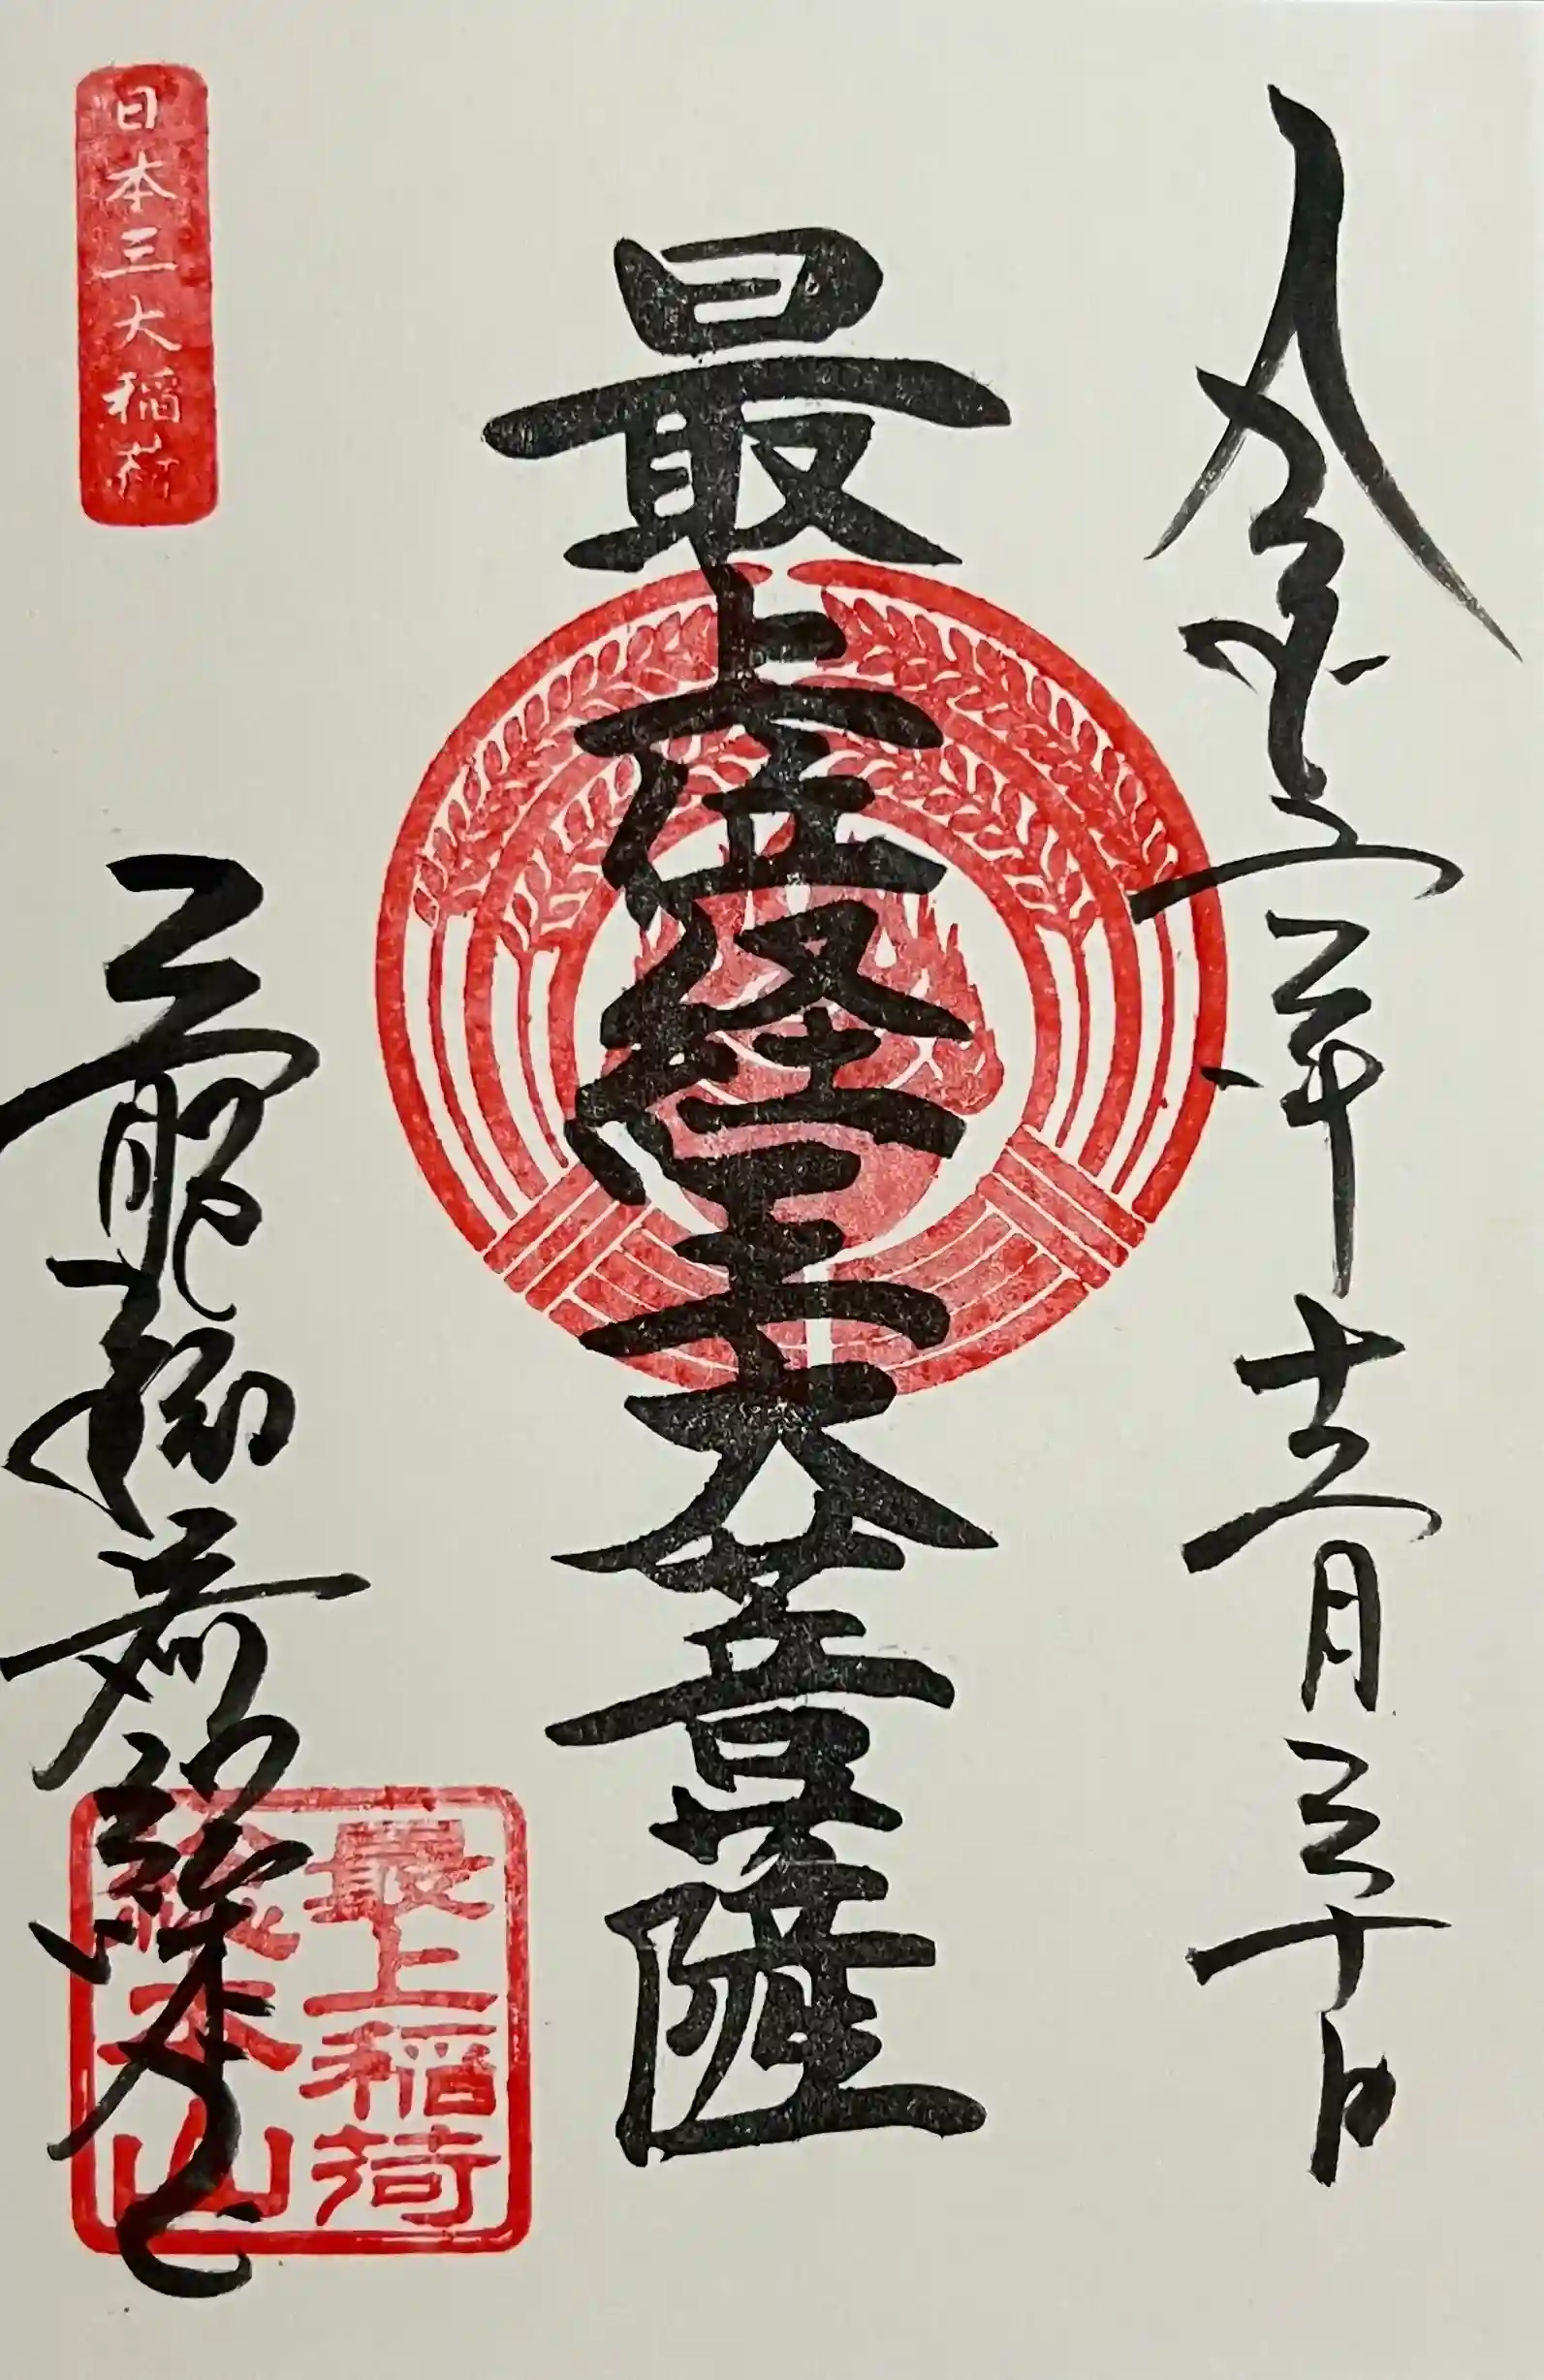 令和二年十二月三十日
最上位経王大菩薩
日本三大稲荷
最上稲荷総本山
最上稲荷
總本山